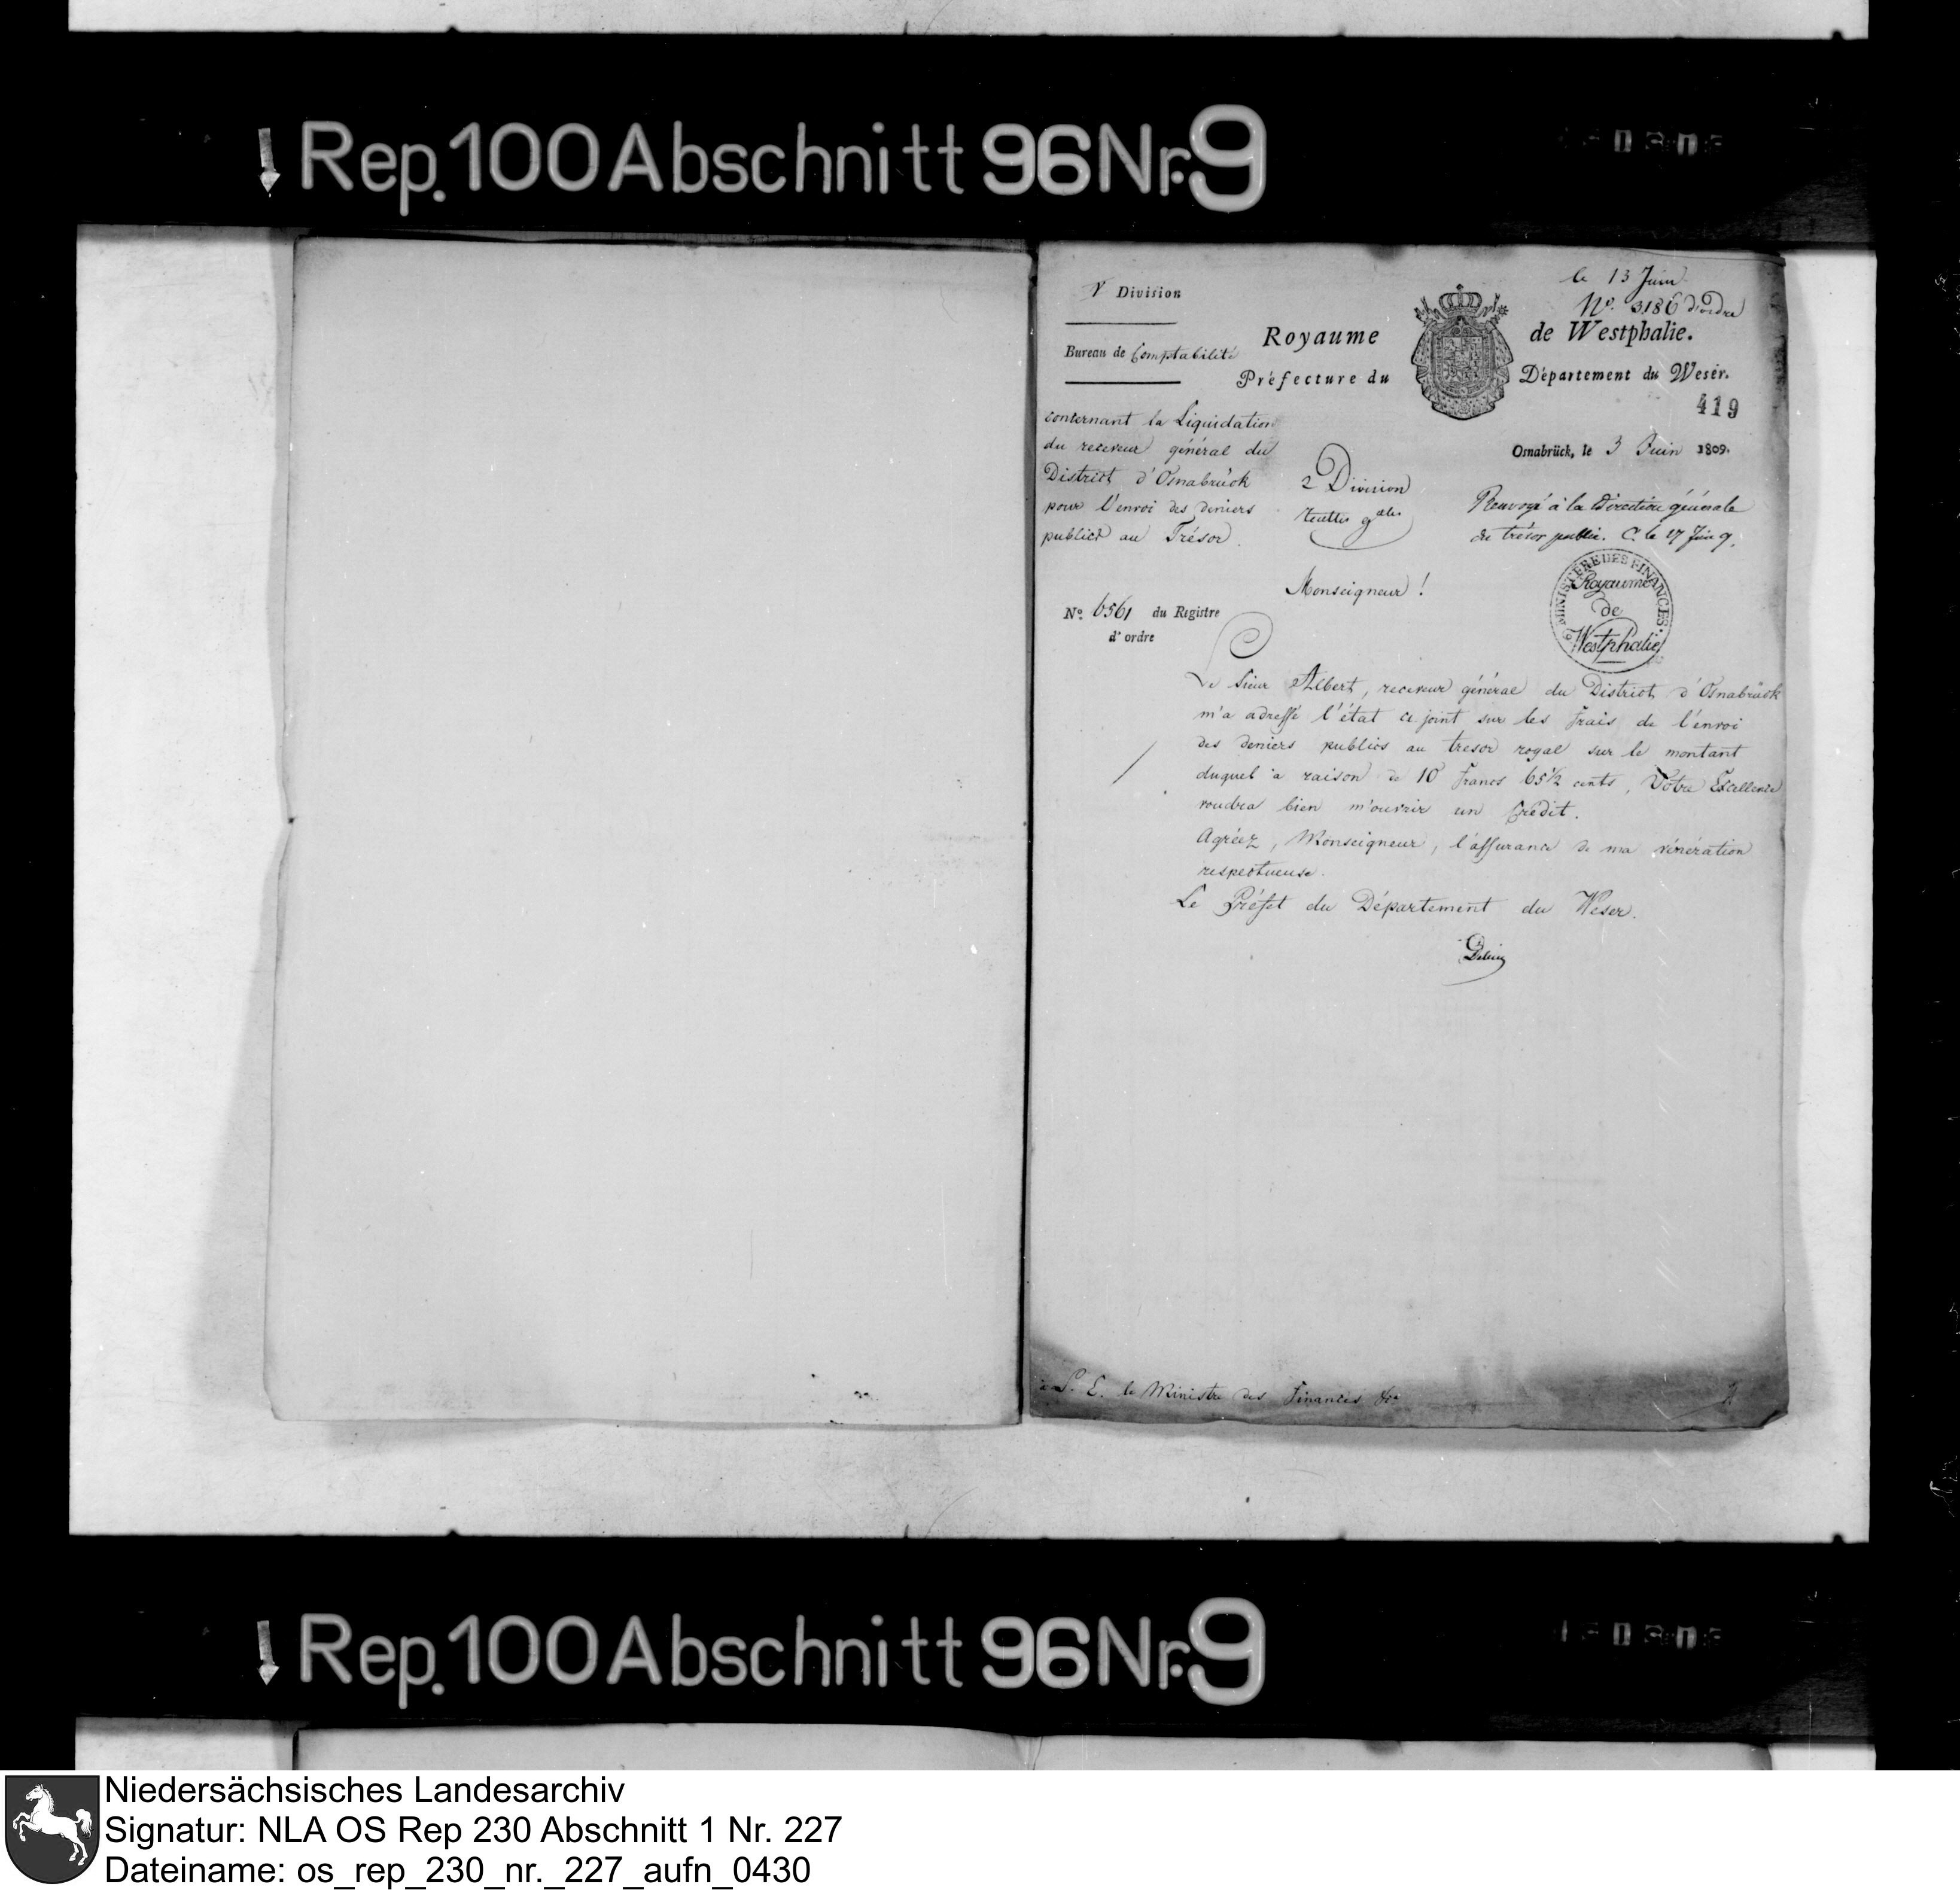 Rep. 100 Abschnitt 96 Nr. 9
V Division
Bureau de Comptabilité
le 13 Juin
No. 3186 d'ordre
Royaume de Westphalie.
Préfecture du Département du Weser.
419
Osnabrück, le 3 Juin 1809.
concernant la Liquidation
du receveur général du
District d'Osnabrück
pour l'envoi des deniers
publics au Trésor.
2 Division
gales
Renvoyé à la Direction générale
du trésor public. C. le 17 Juin 9.
MINISTERE DES FINANCES
Royaume
de
Westphalie
No. 6561 du Registre
d'ordre
Monseigneur!
Le Sieur Albert, receveur général du District d'Osnabrück
m'a adressé l'état ci joint sur les frais de l'envoi
des deniers publics au tresor royal sur le montant
duquel a raison de 10 francs 65½ cents, Votre Excellence
voudra bien m'ouvrir un Crédit.
Agréez, Monseigneur, l'assurance de ma vénération
respectueuse.
Le Préfet du Département du Weser.
a S. E. le Ministre des Finances
Rep. 100 Abschnitt 96 Nr. 9
Niedersächsisches Landesarchiv
Signatur: NLA OS Rep 230 Abschnitt 1 Nr. 227
Dateiname: os_rep_230_nr._227_aufn_0430